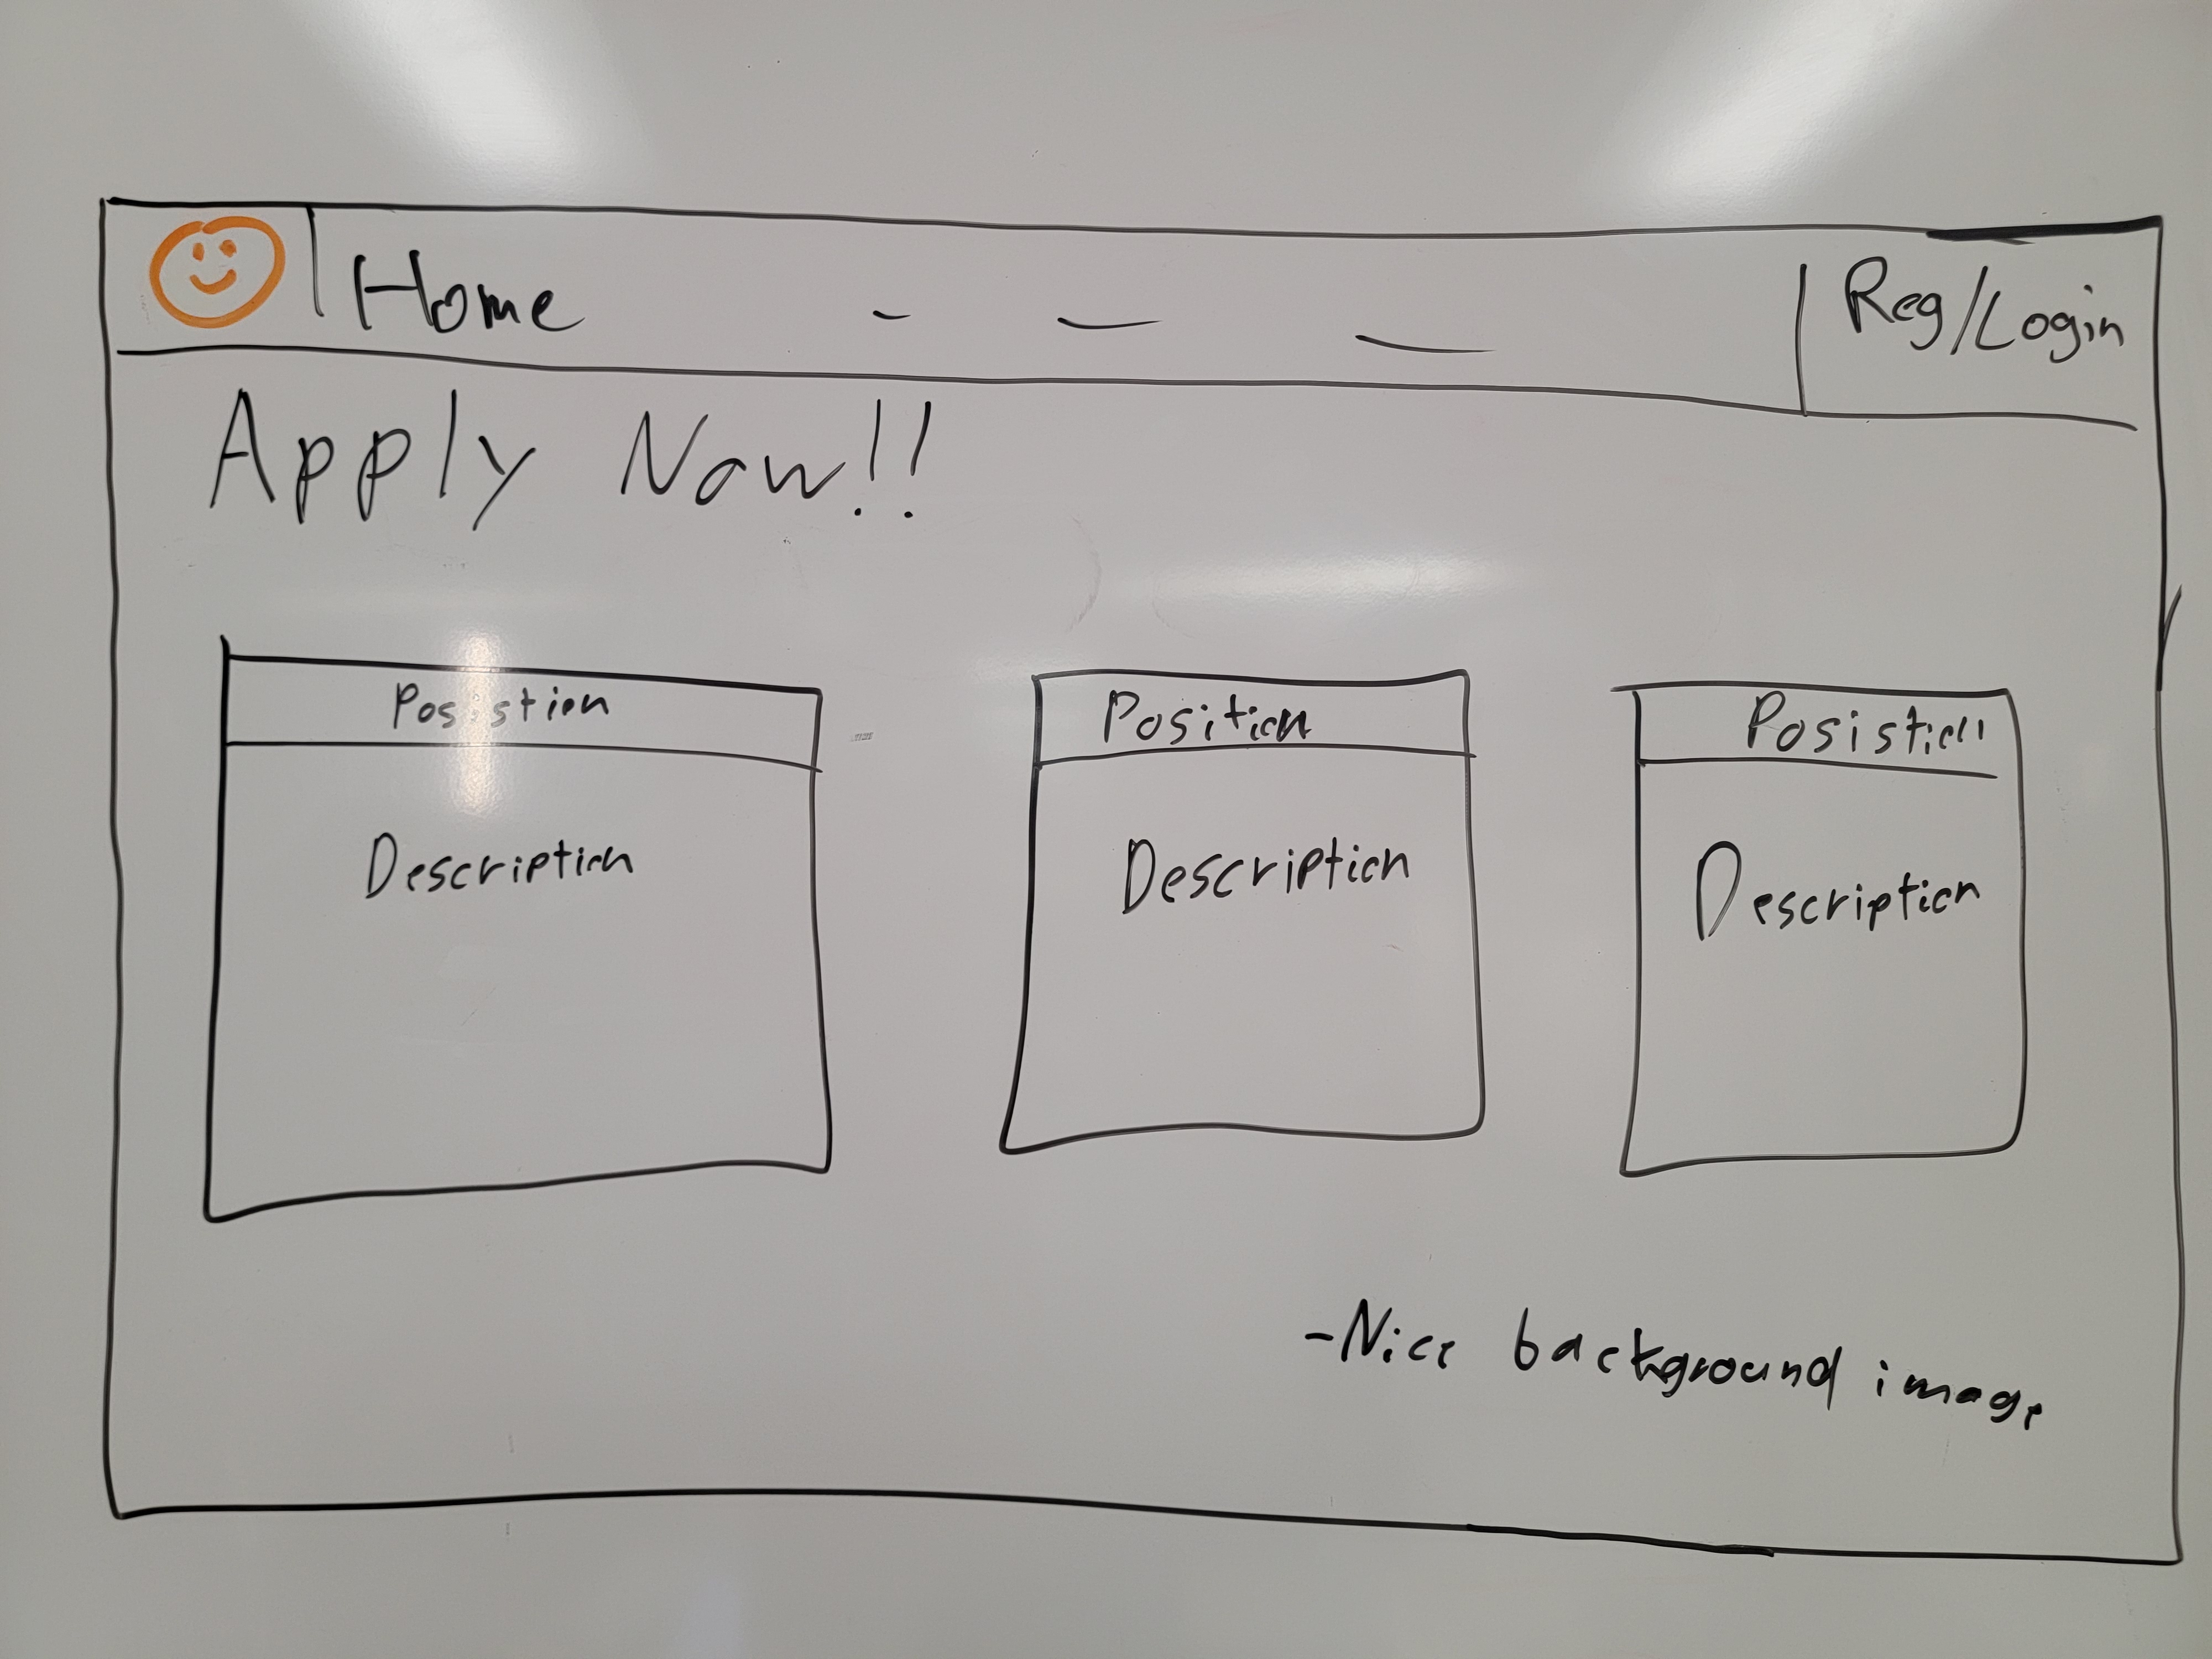 Home - — — Reg/Login
Apply Now!!
Posistion Position Posistion
Description Description Description
-Nice background image